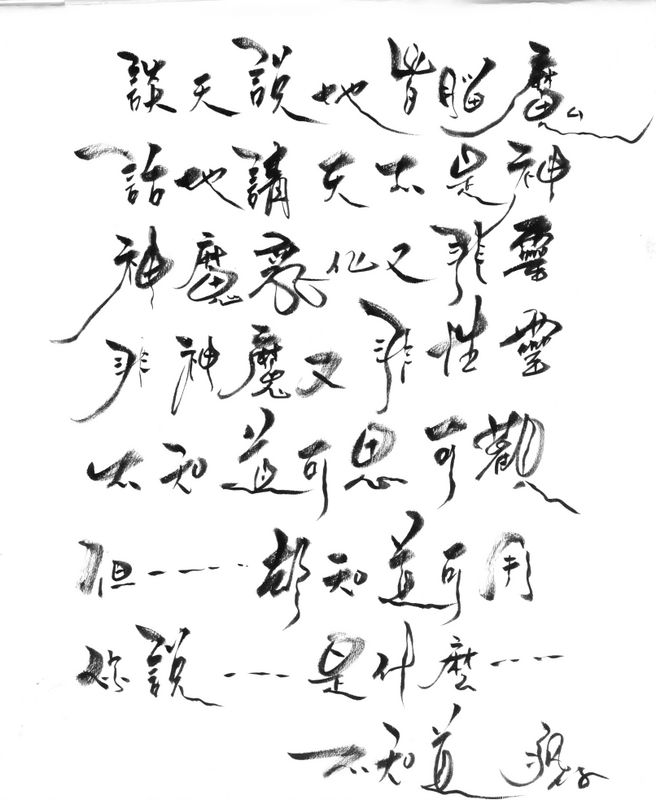 談天說地皆腦魔
話地請天不是神
神魔眾仙又非靈
非神魔又非性靈
不知道可思可觀
但----都知道可用
你說----是什麼----
不知道